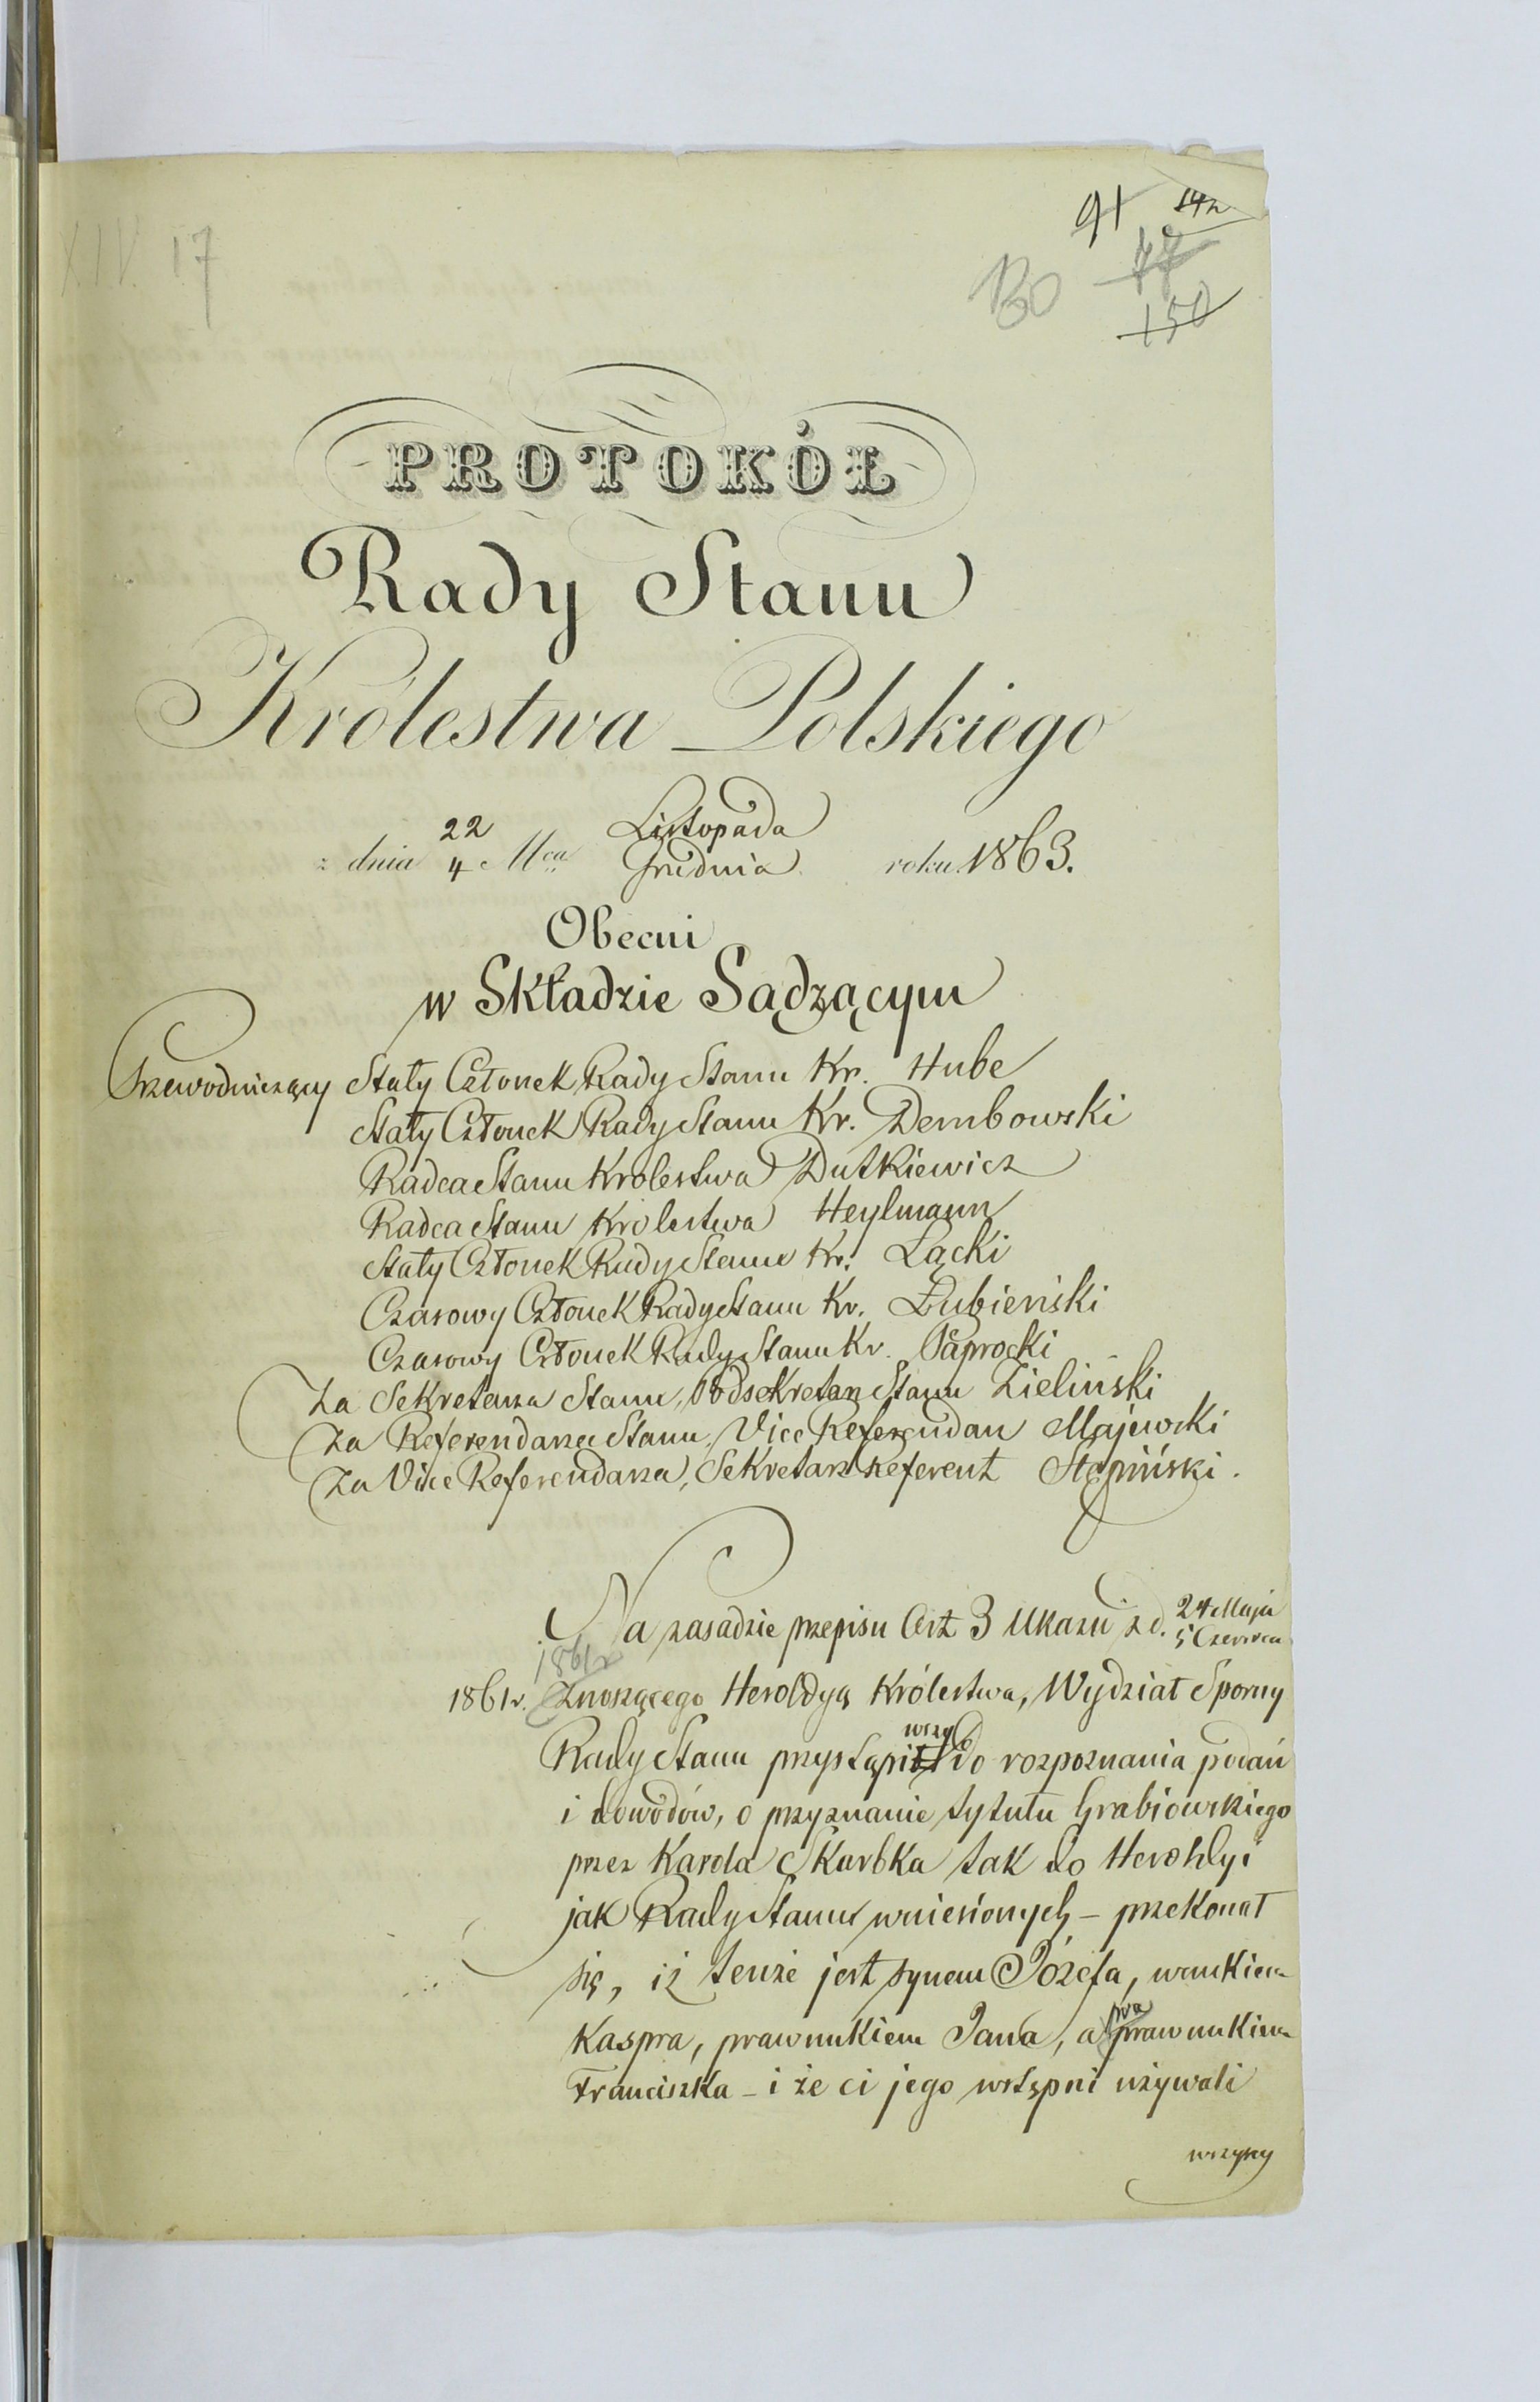 XIV. 17
91 142
77
130
150
PROTOKÓŁ
Rady Stanu
Królestwa Polskiego
z dnia 22/4 Mca Listopada/Grudnia roku 1863.
Obecni
w Składzie Sądzącym
Przewodniczący Stały Członek Rady Stanu Kr. Hube
Stały Członek Rady Stanu Kr. Dembowski
Radca Stanu Królestwa Dutkiewicz
Radca Stanu Królestwa Heylmann
Stały Członek Rady Stanu Kr. Łącki
Czasowy Członek Rady Stanu Kr. Łubieński
Czasowy Członek Rady Stanu Kr. Paprocki
Za Sekretarza Stanu, Podsekretarz Stanu Zieliński
Za Referendarza Stanu, Vice Referendarz Majewski
Za Vice Referendarza, Sekretarz Referent Stępiński.
Na zasadzie przepisu Art 3 Ukazu z d. 24 Maja/5 Czerwca
1861r
1861r. Znoszącego Heroldyą Królestwa, Wydział Sporny
Rady Stanu przystąpiwszy do rozpoznania podań
i dowodów, o przyznanie tytułu Hrabiowskiego
przez Karola Skarbka tak do Heroldyi
jak Rady Stanu wniesionych – przekonał
się, iż tenże jest synem Józefa, wnukiem
Kaspra, prawnukiem Jana, a praprawnukiem
Franciszka – i że ci jego wstępni używali
wszyscy